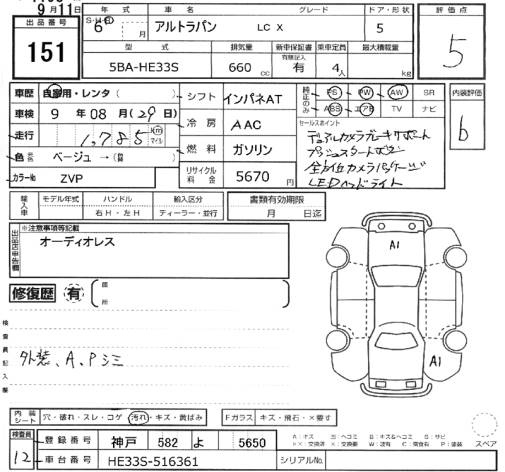 9月11日
出品番号
151
年式
S・H・R
6 月
車名
アルトラパン
グレード
LC X
ドア・形状
5
評価点
5
型式
5BA-HE33S
排気量
660 cc
新車保証書
有無記入
有
乗車定員
4人
最大積載量
kg
車歴 自家用・レンタ (
車検 9 年 08 月 ( 29 日 )
走行 1,785 Km マイル
色 ベージュ → (
カラーNo ZVP
シフト インパネAT
冷房 AAC
燃料 ガソリン
リサイクル料金 5670 円
純正のみ
PS PW AW SR
ABS エアB TV ナビ
セールスポイント
デュアルカメラブレーキサポート
プッシュスタートボタン
全方位カメラパッケージ
LEDヘッドライト
内装評価
b
輸入車
モデル年式
ハンドル
右H・左H
輸入区分
ディーラー・並行
書類有効期限
月 日迄
※注意事項等記載
オーディオレス
修復歴 有
箇所
検査員記入欄
外装、A、Pシミ
A1
A1
内装シート 穴・破れ・スレ・コゲ・汚れ・キズ・黄ばみ
Fガラス キズ・飛石・×要す
スペア
検査員
12
登録番号 神戸 582 よ 5650
車台番号 HE33S-516361
シリアルNo.